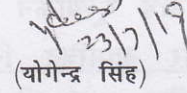 23/7/19
(योगेन्द्र सिंह)